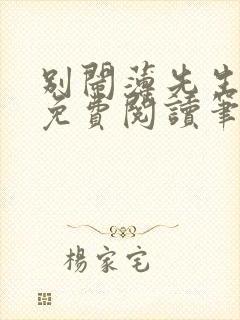 別鬧薄先生
免費閱讀筆
楊家宅